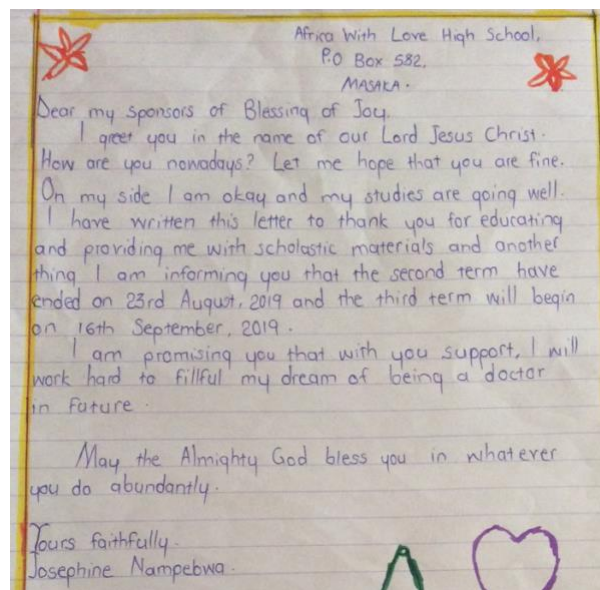 Africa With Love High School,
P.O Box 582,
MASAKA.
Dear my sponsors of Blessing of Joy,
I greet you in the name of our Lord Jesus Christ.
How are you nowadays? Let me hope that you are fine.
On my side I am okay and my studies are going well.
I have written this letter to thank you for educating
and providing me with scholastic materials and another
thing I am informing you that the second term have
ended on 23rd August, 2019 and the third term will begin
on 16th September, 2019.
I am promising you that with you support, I will
work hard to fillful my dream of being a doctor
in future.
May the Almighty God bless you in whatever
you do abundantly.
Yours faithfully.
Josephine Nampebwa.